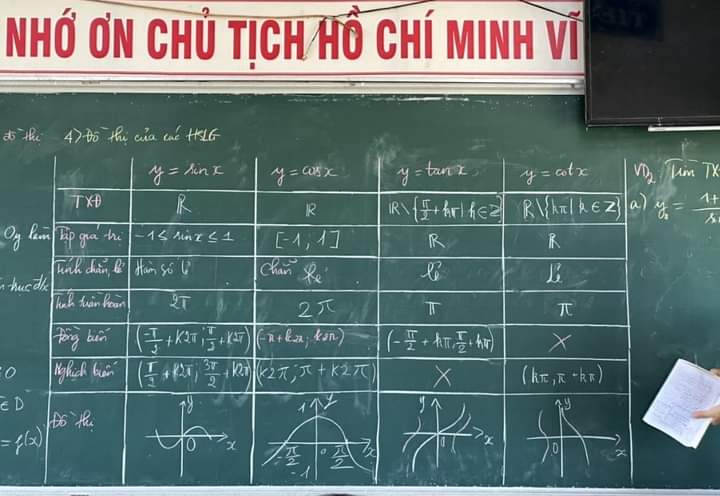 NHỚ ƠN CHỦ TỊCH HỒ CHÍ MINH VĨ
đồ thị 4) Đồ thị của các HSLG
y = sin x y = cos x y = tan x y = cot x
TXĐ ℝ ℝ ℝ\{π/2 + kπ | k ∈ ℤ} ℝ\{kπ | k ∈ ℤ}
Tập giá trị -1 ≤ sin x ≤ 1 [-1; 1] ℝ ℝ
Tính chẵn, lẻ Hàm số lẻ chẵn lẻ lẻ
Tính tuần hoàn 2π 2π π π
Đồng biến (-π/2 + k2π; π/2 + k2π) (-π + k2π; k2π) (-π/2 + kπ; π/2 + kπ) X
Nghịch biến (π/2 + k2π; 3π/2 + k2π) (k2π; π + k2π) X (kπ, π + kπ)
Đồ thị
y 0 x
1 y -π/2 0 π/2 x -1
y 0 x
y 0 x
Oy
∈ D
= f(x)
VD2 Tìm TX
a) y = 1+